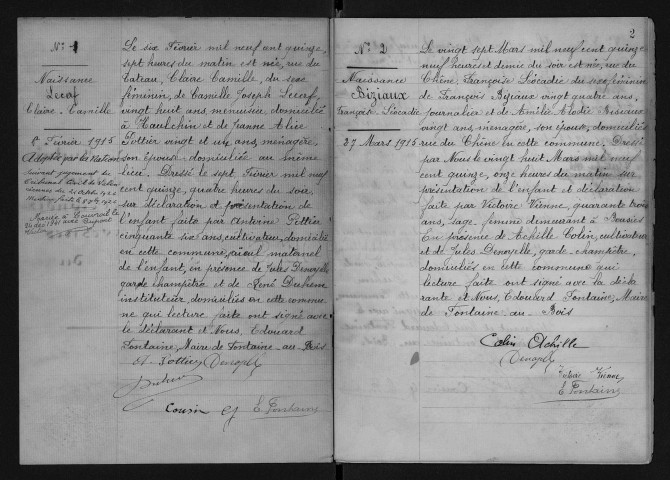 N° 1
Naissance
Lecaf
Claire-Camille
6 Février 1915
Adoptée par la Nation
suivant jugement du
Tribunal Civil de Valen
ciennes du
Mariée à
Le six Février mil neuf cent quinze,
sept heures du matin est née, rue du
Cateau, Claire Camille, du sexe
féminin, de Camille Joseph Lecaf,
vingt huit ans, menuisier domicilié
à Haulchin et de Jeanne Alice
Pottier vingt et un ans, ménagère,
son épouse domiciliée au même
lieu. Dressé le sept Février mil neuf
cent quinze, quatre heures du soir,
sur déclaration et présentation de
l'enfant faite par Antoine Pottier
cinquante six ans, cultivateur, domicilié
en cette commune, aïeul maternel
de l'enfant, en présence de Jules Denoyelle
garde champêtre et de René
instituteur, domiciliés en cette commu-
ne qui lecture faite ont signé avec
le déclarant et Nous, Edouard
Fontaine, Maire de Fontaine-au-Bois
A Pottier Denoyelle
Cousin E. Fontaine
2
N° 2
Naissance
Biziaux
Françoise Léocadie
27 Mars 1915
Le vingt sept Mars mil neuf cent quinze
neuf heures et demie du soir est née, rue du
Chêne, Françoise Léocadie du sexe féminin
de François Biziaux vingt quatre ans,
journalier et de Amélie Elodie Bisiaux
vingt ans, ménagère, son épouse, domiciliés
rue du Chêne en cette commune. Dressé
par Nous le vingt huit Mars mil neuf
cent quinze, onze heures du matin sur
présentation de l'enfant et déclaration
faite par Victoire Vienne, quarante trois
ans, sage femme demeurant à Bousies
En présence de Achille Colin, cultivateur
et de Jules Denoyelle, garde-champêtre,
domiciliés en cette commune qui
lecture faite ont signé avec la décla
rante et Nous, Edouard Fontaine, Maire
de Fontaine-au-Bois
Colin Achille
Denoyelle
Vienne
E Fontaine